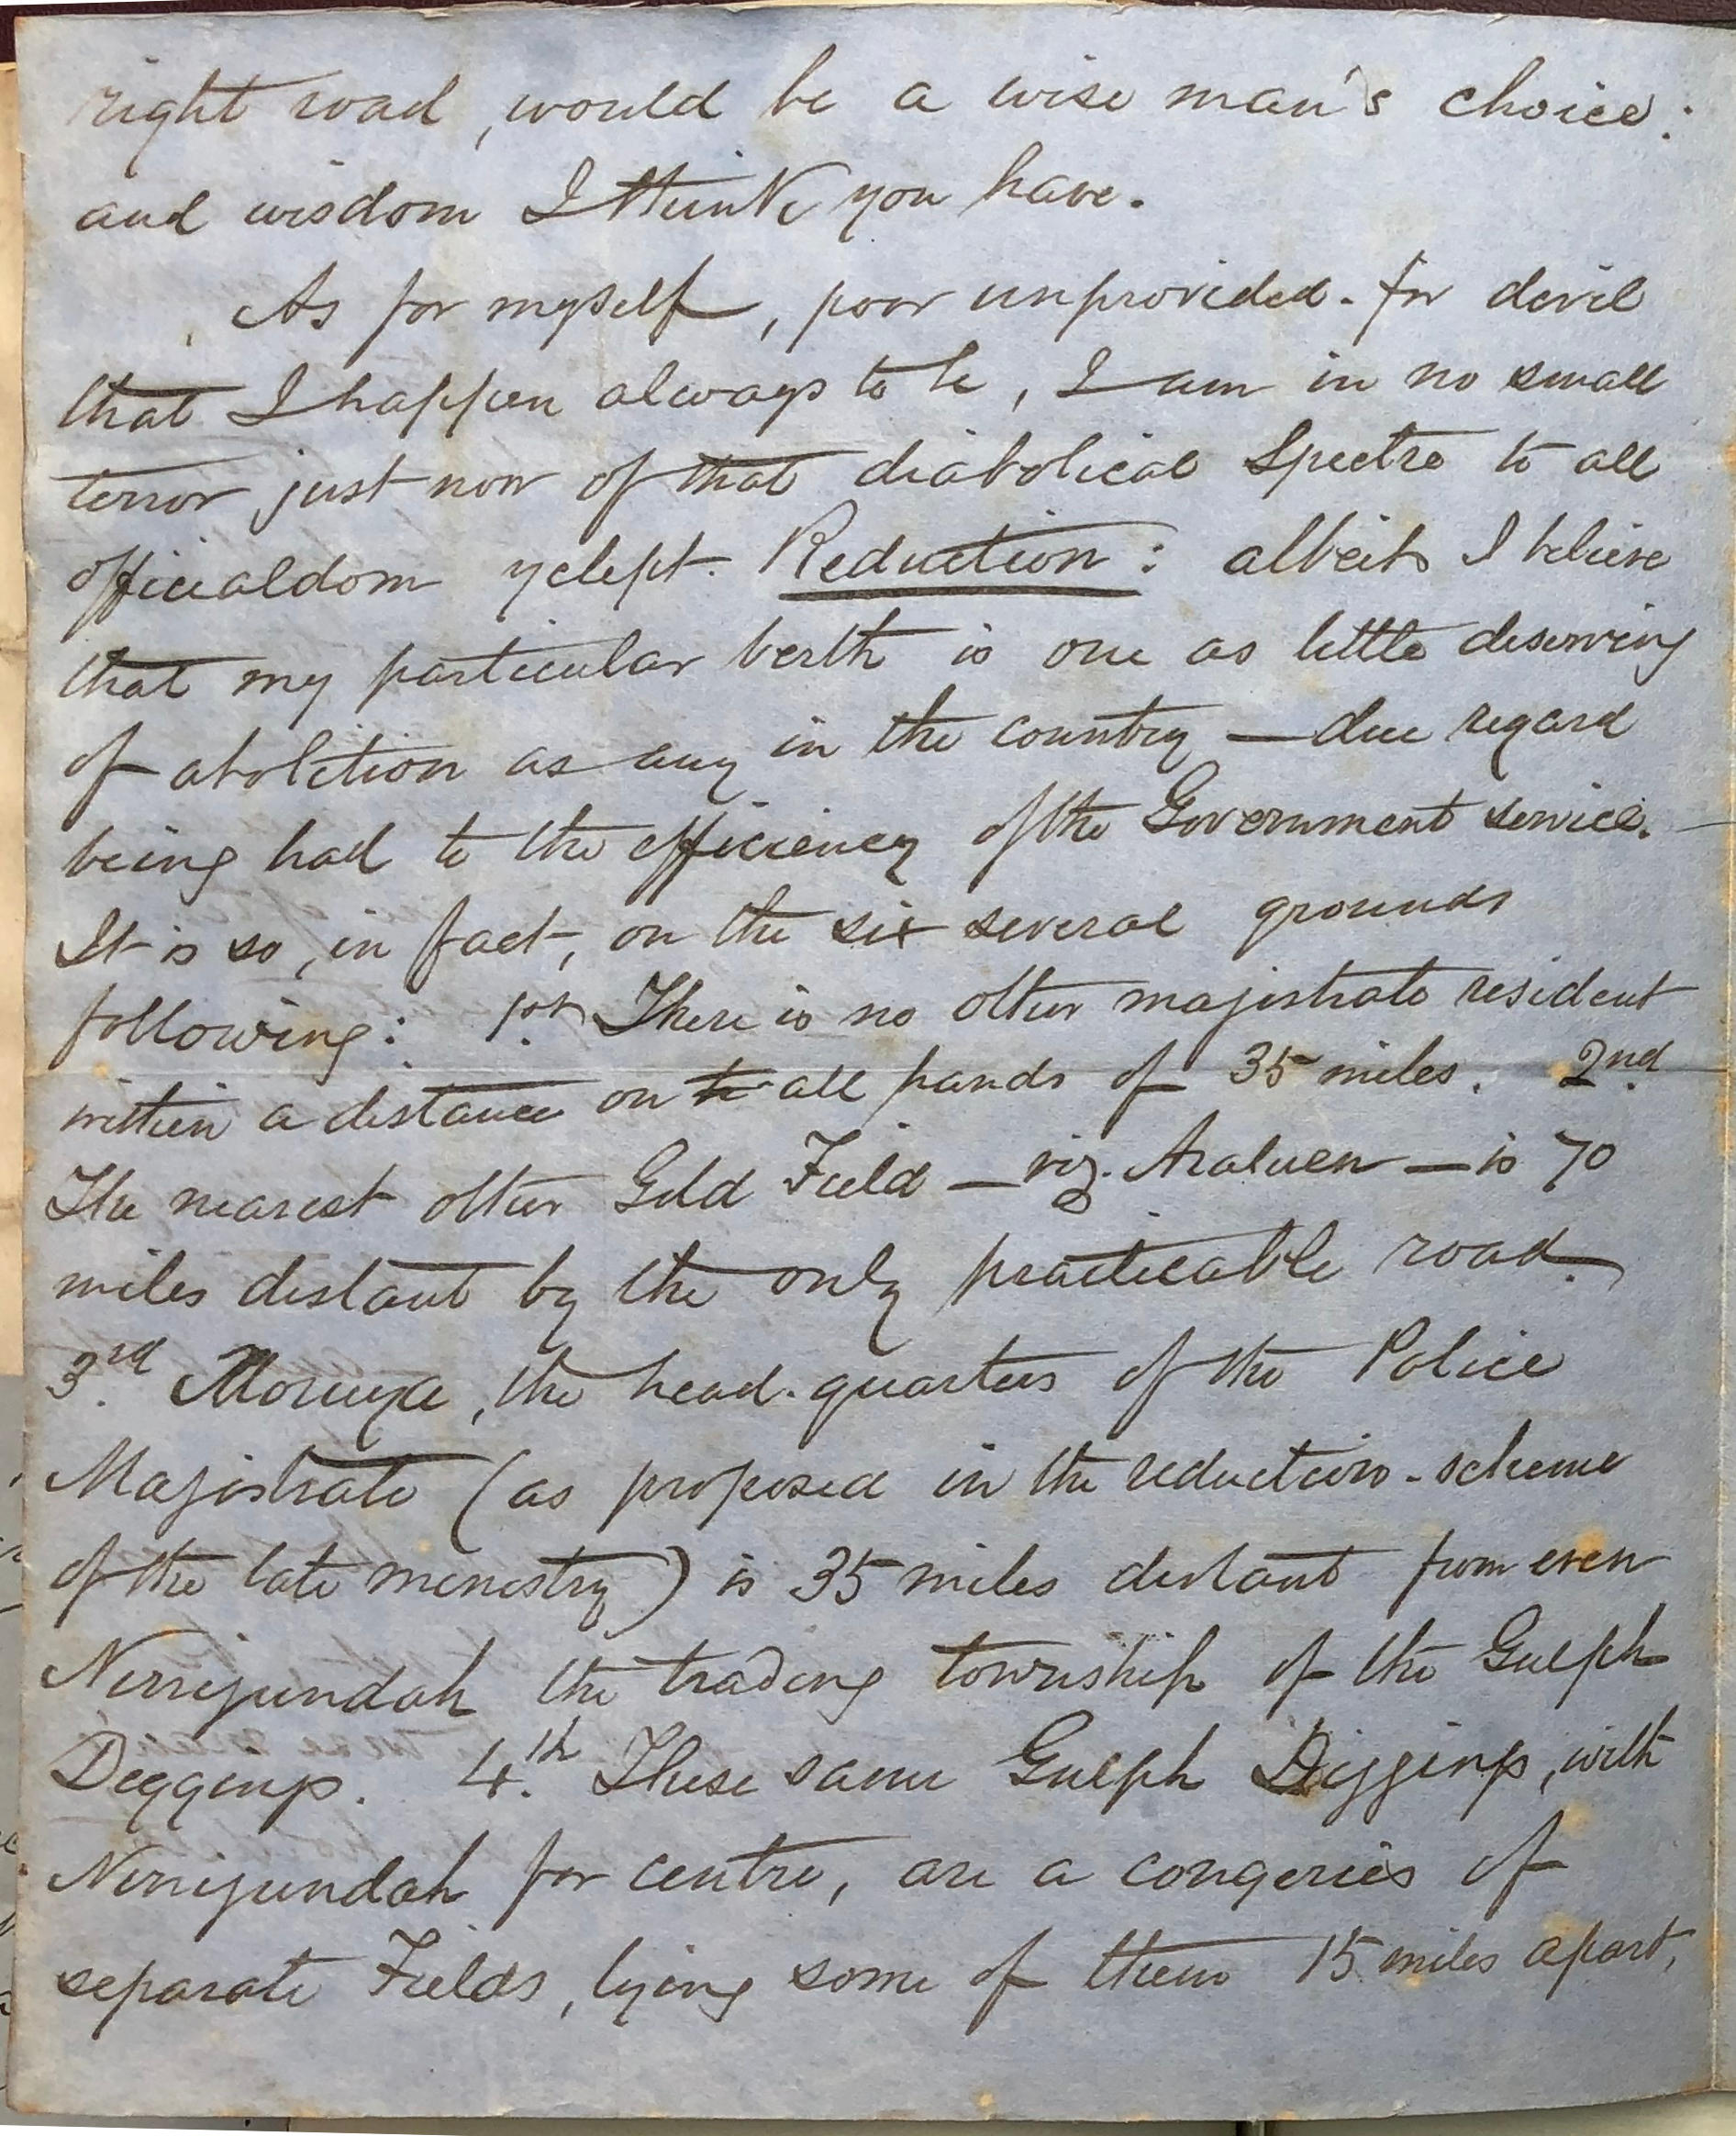 right road, would be a wise man's choice:
and wisdom I think you have.
As for myself, poor unprovided-for devil
that I happen always to be, I am in no small
terror just now of that diabolical Spectre to all
officialdom yclept Reduction: albeit I believe
that my particular berth is one as little deserving
of abolition as any in the country — due regard
being had to the efficiency of the Government service.
It is so, in fact, on the six several grounds
following: 1st. There is no other magistrate resident
within a distance on all hands of 35 miles. 2nd.
The nearest other Gold Field — viz. Araluen — is 70
miles distant by the only practicable road.
3rd. Moruya, the head-quarters of the Police
Magistrate (as proposed in the reduction-scheme
of the late ministry) is 35 miles distant from even
Nerrigundah the trading township of the Gulph
Diggings. 4th. These same Gulph Diggings, with
Nerrigundah for centre, are a congeries of
separate Fields, lying some of them 15 miles apart,